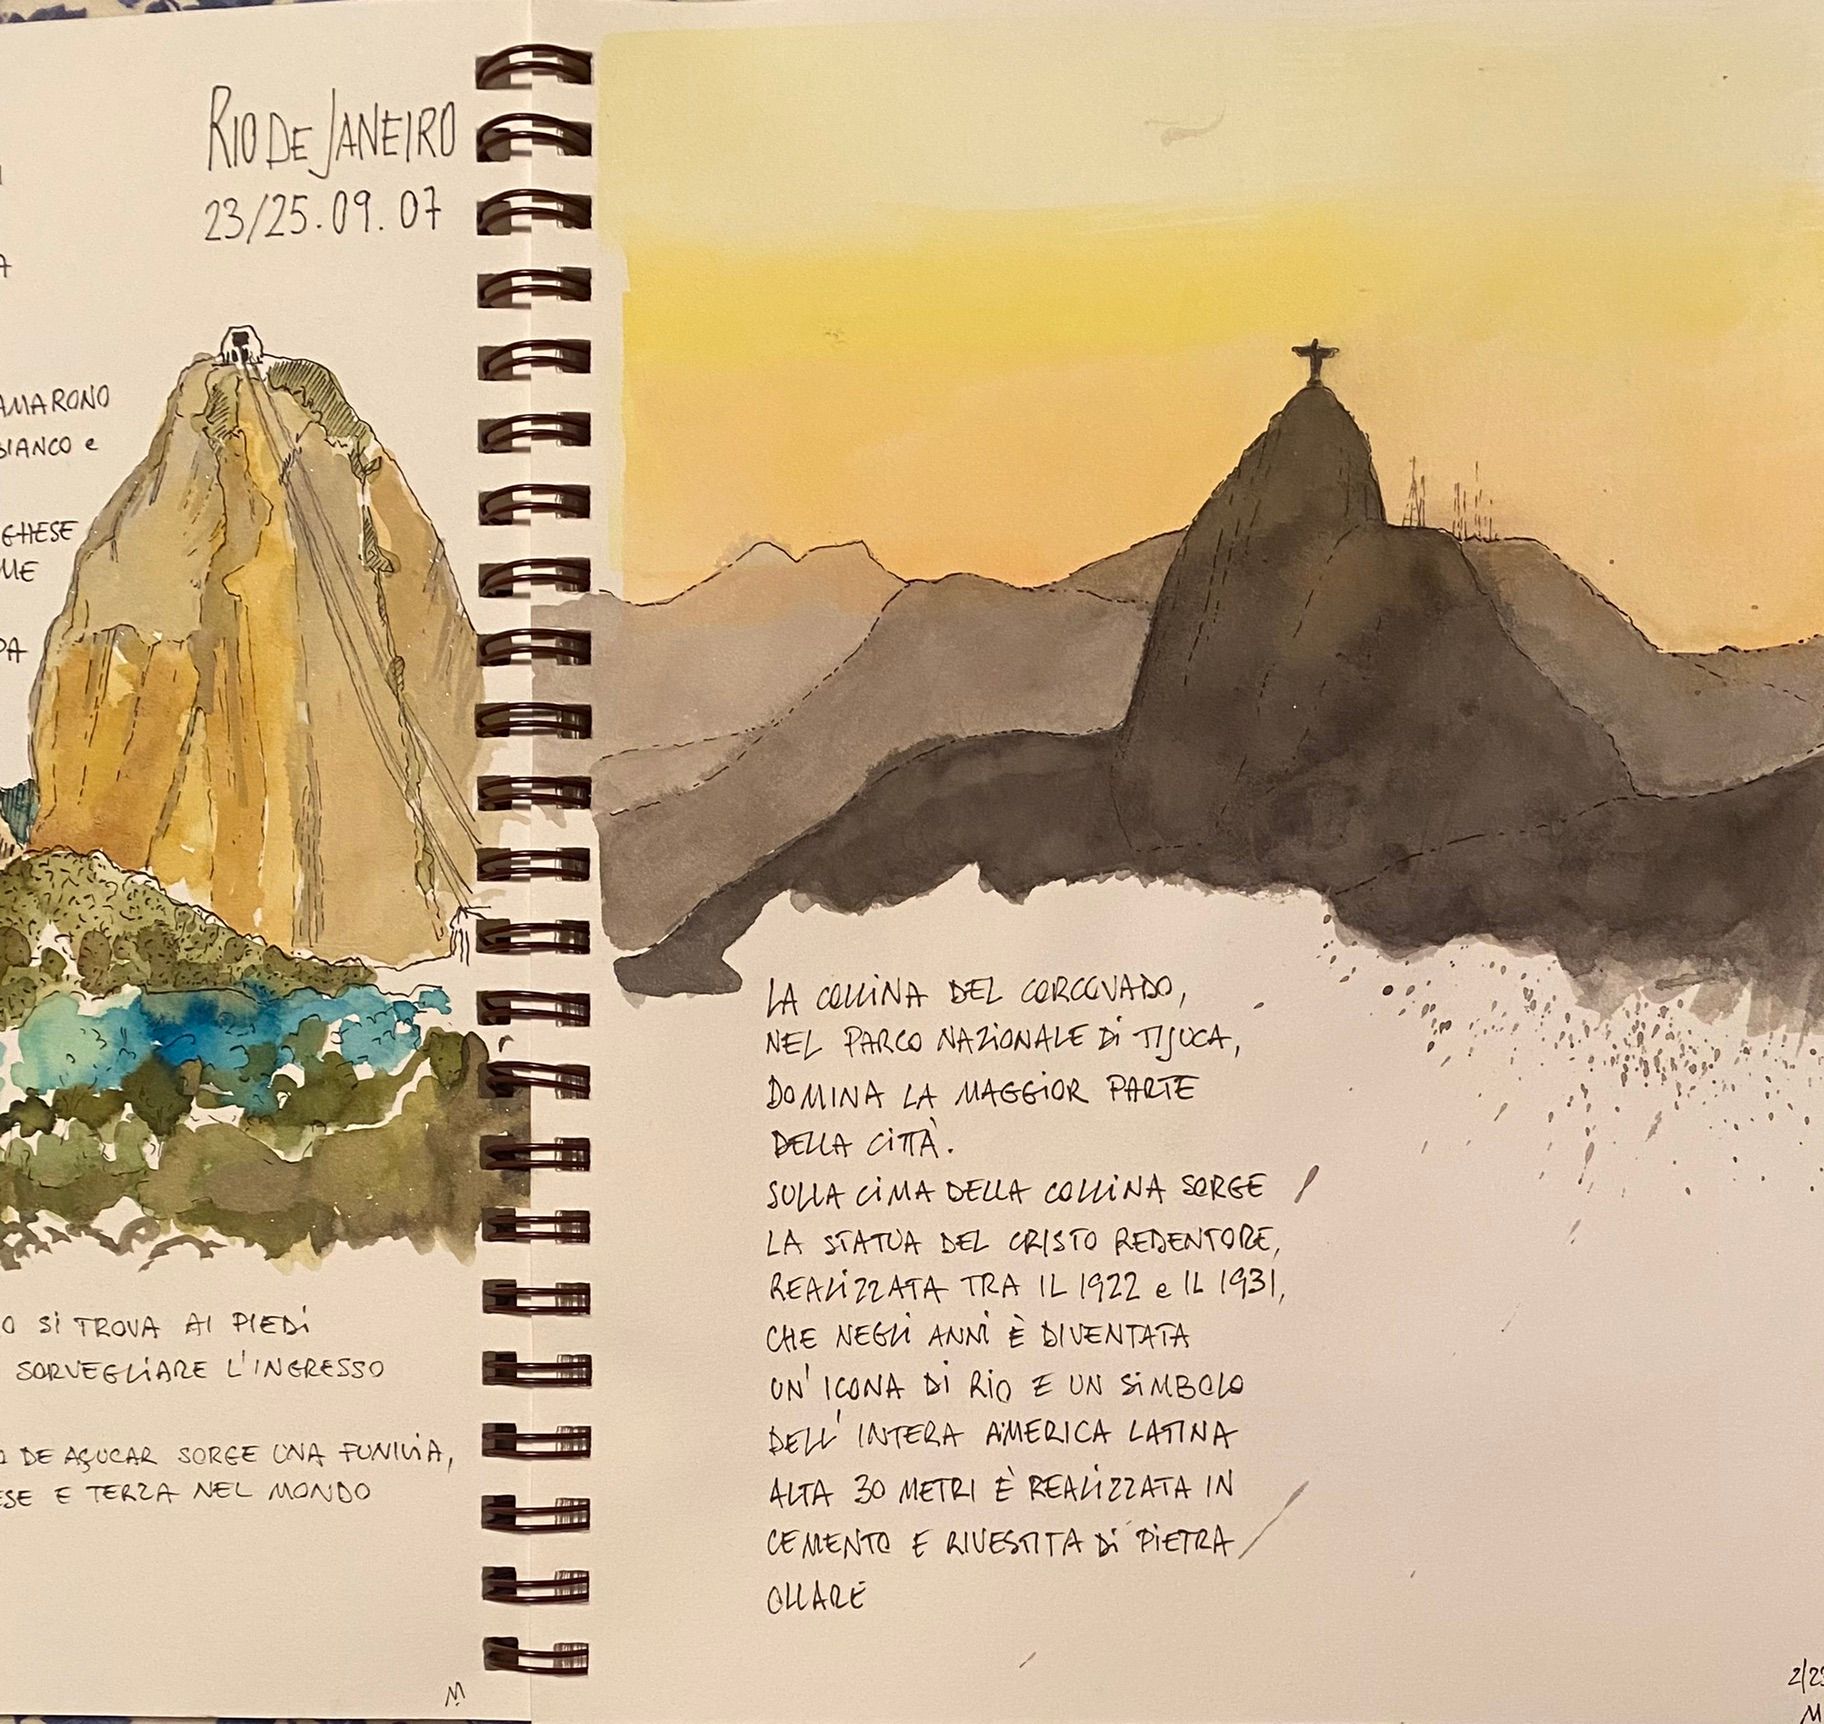 RIO DE JANEIRO
23/25.09.07
AMARONO
BIANCO e
GHESE
ME
PA
O SI TROVA AI PIEDI
SORVEGLIARE L'INGRESSO
DE AÇUCAR SORGE UNA FUNIVIA,
ESE E TERZA NEL MONDO
M
LA COLLINA DEL CORCOVADO,
NEL PARCO NAZIONALE DI TIJUCA,
DOMINA LA MAGGIOR PARTE
DELLA CITTÀ.
SULLA CIMA DELLA COLLINA SORGE
LA STATUA DEL CRISTO REDENTORE,
REALIZZATA TRA IL 1922 e IL 1931,
CHE NEGLI ANNI È DIVENTATA
UN'ICONA DI RIO E UN SIMBOLO
DELL'INTERA AMERICA LATINA
ALTA 30 METRI È REALIZZATA IN
CEMENTO E RIVESTITA DI PIETRA
OLLARE
M